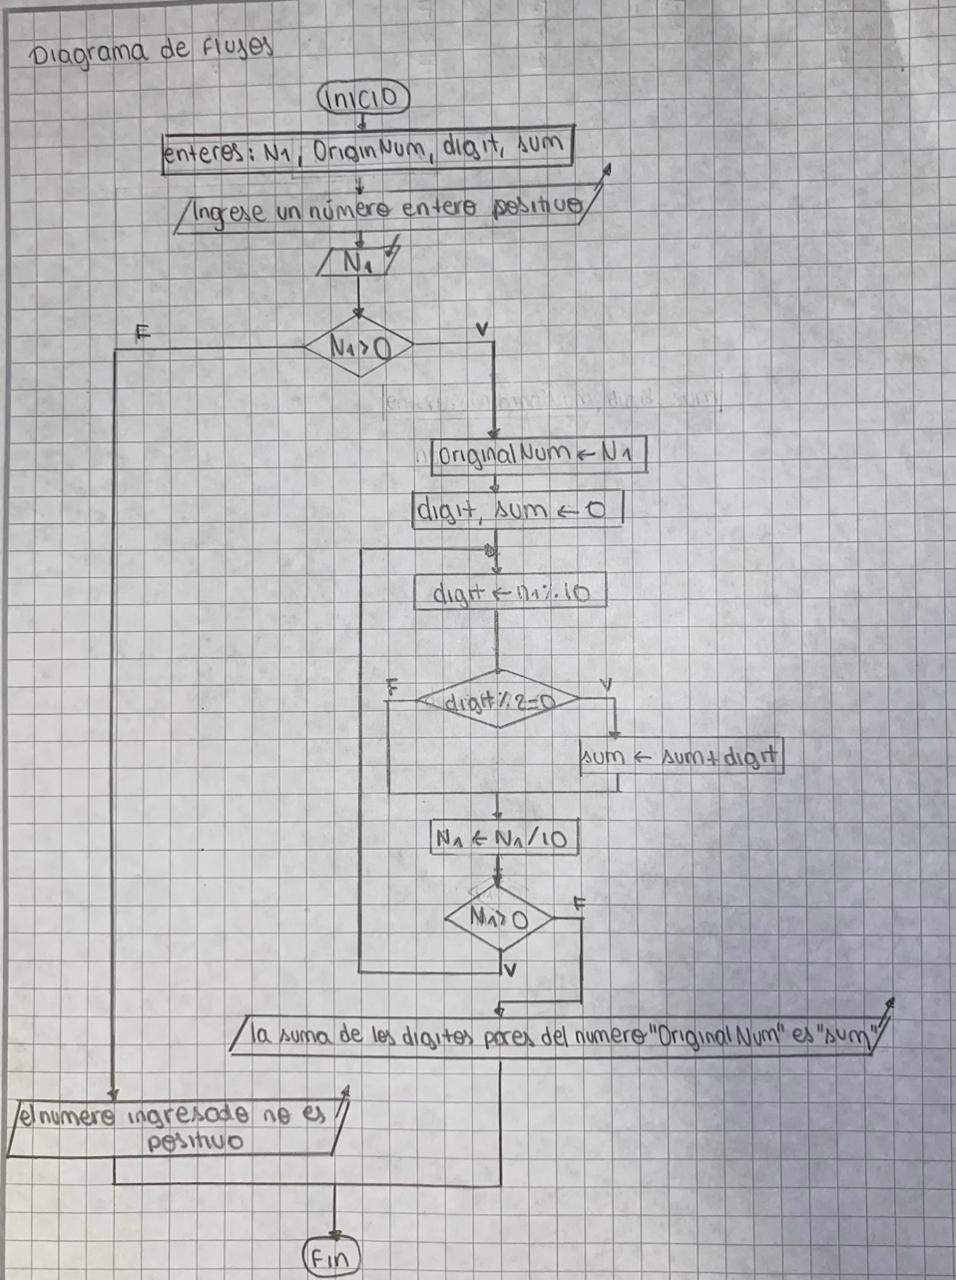 Diagrama de Flujos
INICIO
enteros: N1, OriginNum, digit, sum
Ingrese un número entero positivo
N1
F
V
N1>0
OriginalNum ← N1
digit, sum ← 0
digit ← n1%10
F
V
digit%2=0
sum ← sum+digit
N1 ← N1/10
N1>0
F
V
la suma de los digitos pares del numero "OriginalNum" es "sum"
el numero ingresado no es
positivo
Fin